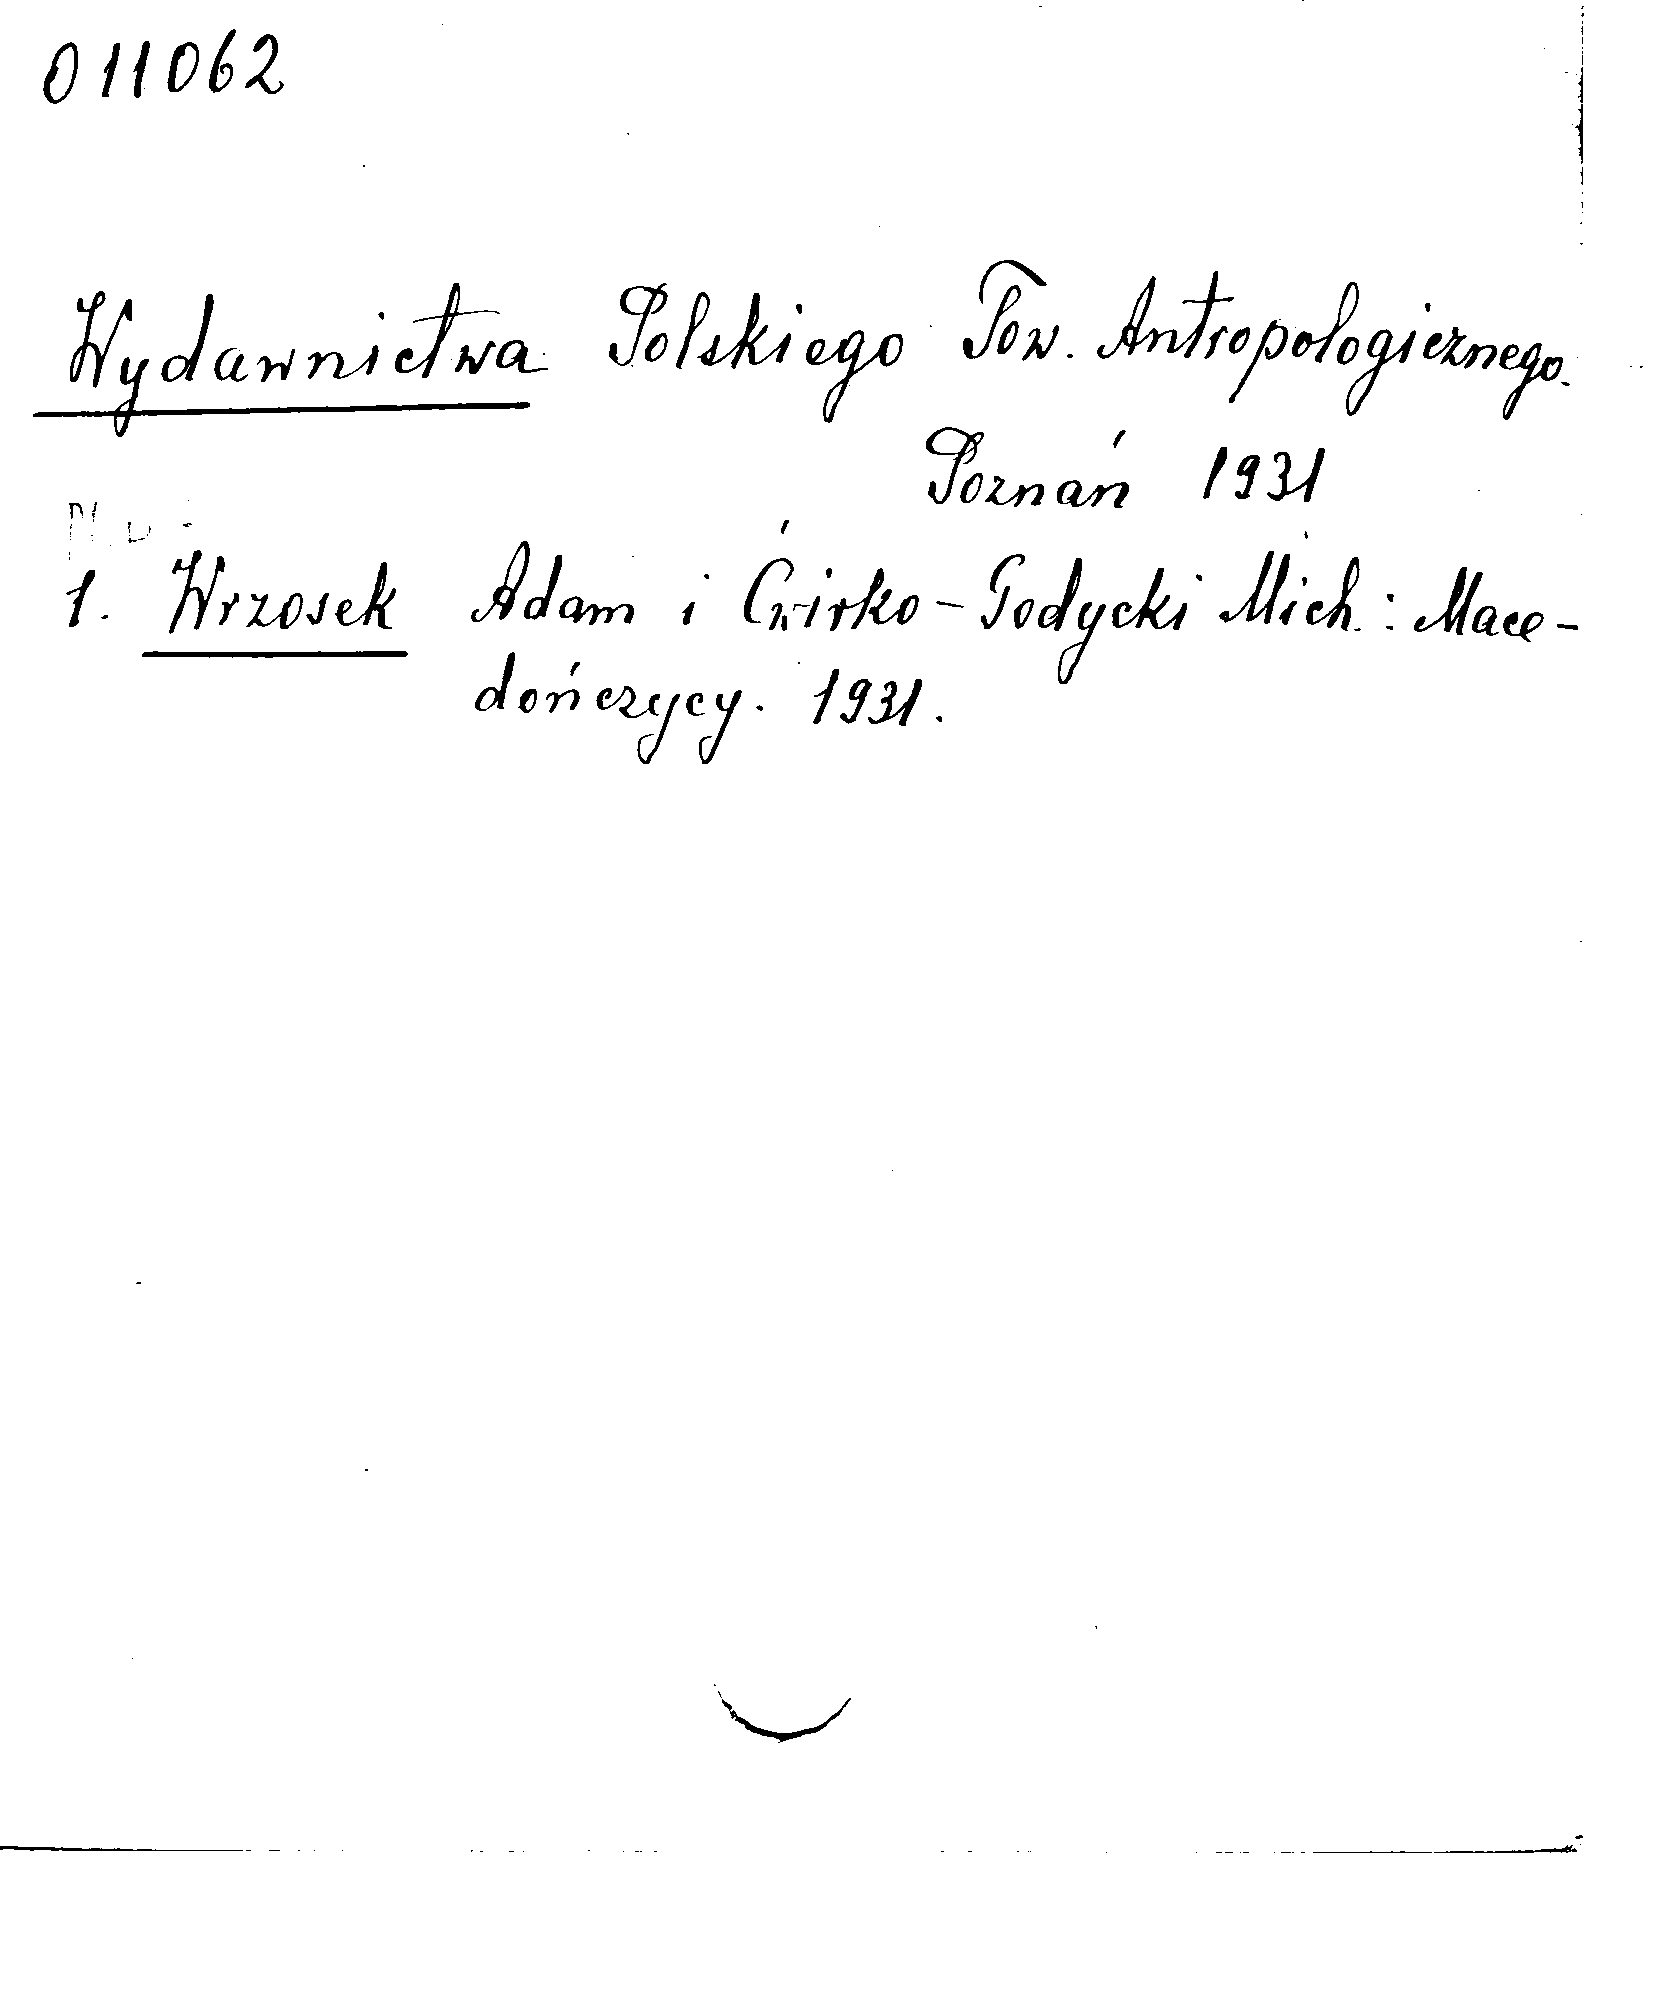 011062
Wydawnictwa Polskiego Tow. Antropologicznego.
Poznań 1931
1. Wrzosek Adam i Ćwirko-Godycki Mich.: Mace-
dończycy. 1931.